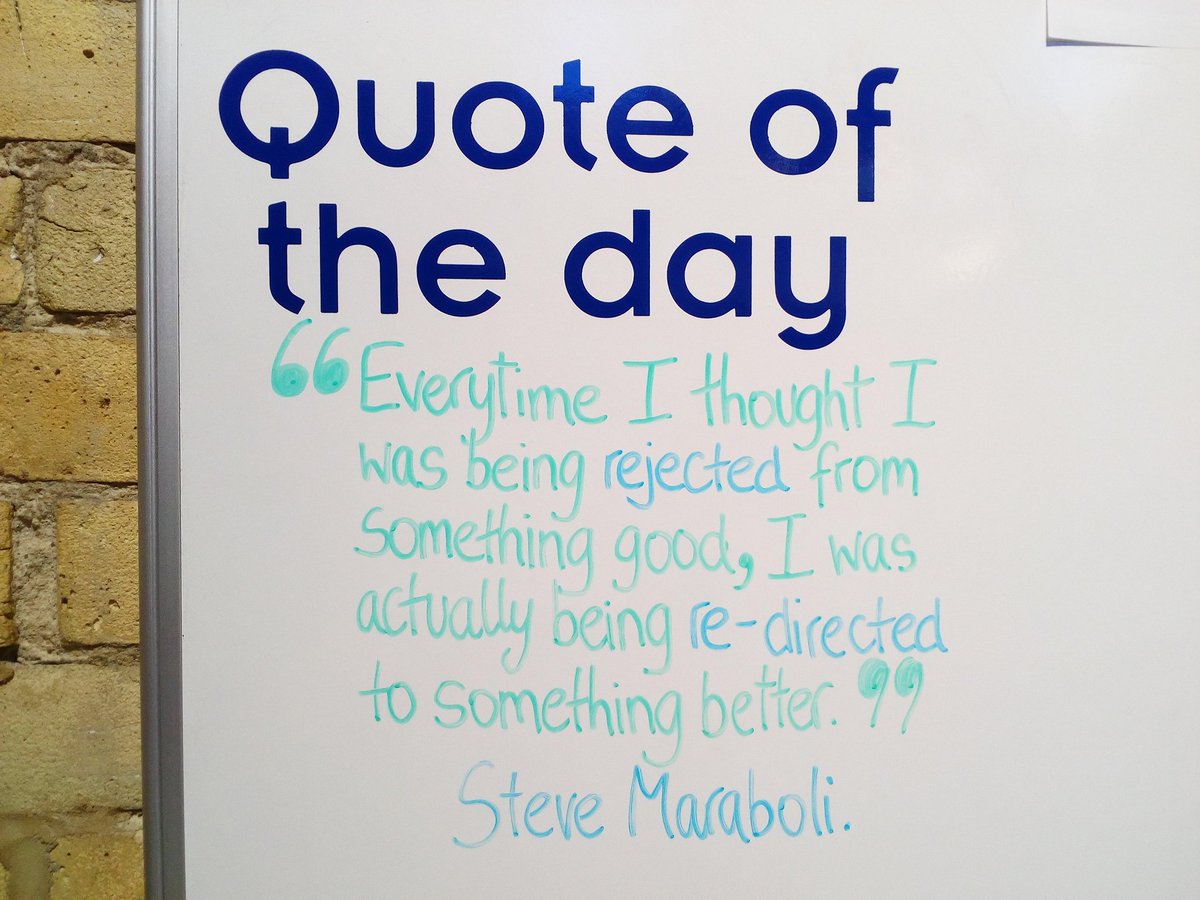 Quote of
the day
“Everytime I thought I
was being rejected from
something good, I was
actually being re-directed
to something better.”
Steve Maraboli.